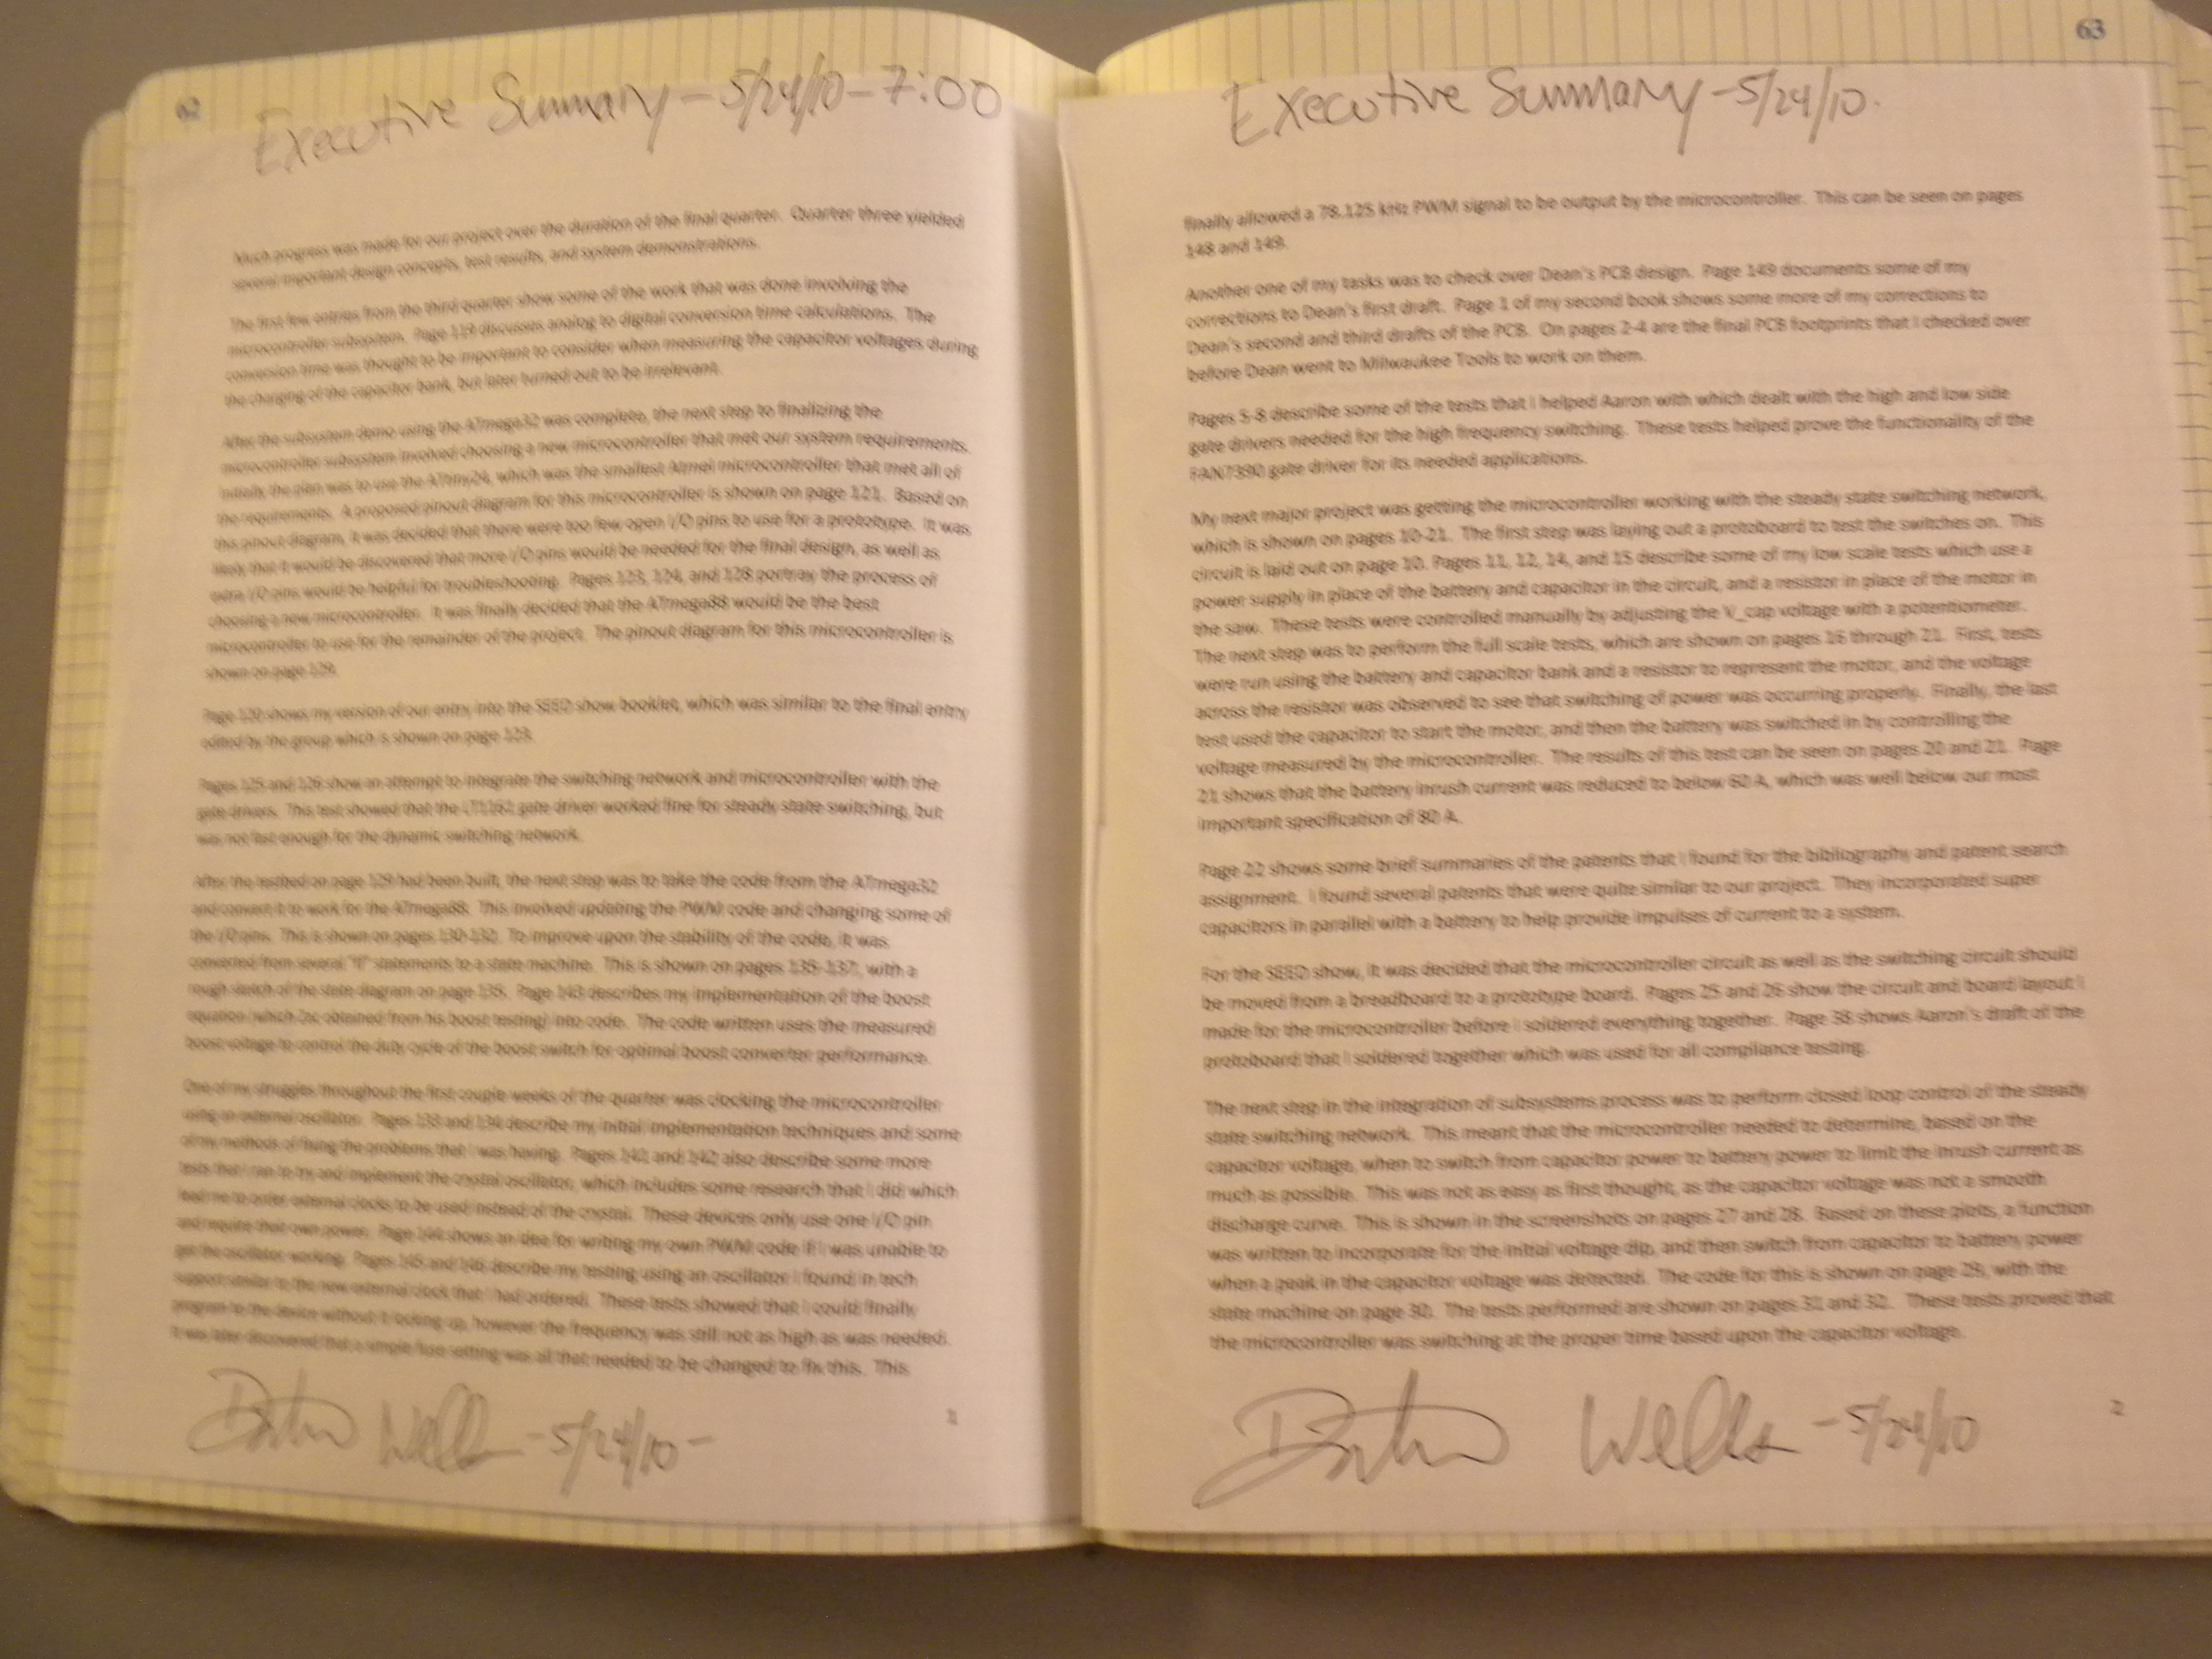 62
Executive Summary - 5/24/10 - 7:00
Much progress was made for our project over the duration of the final quarter. Quarter three yielded
several important design concepts, test results, and system demonstrations.
The first few entries from the third quarter show some of the work that was done involving the
microcontroller subsystem. Page 119 discusses analog to digital conversion time calculations. The
conversion time was thought to be important to consider when measuring the capacitor voltages during
the charging of the capacitor bank, but later turned out to be irrelevant.
After the subsystem demo using the ATmega32 was complete, the next step to finalizing the
microcontroller subsystem involved choosing a new microcontroller that met our system requirements.
Initially, the plan was to use the ATtiny24, which was the smallest Atmel microcontroller that met all of
the requirements. A proposed pinout diagram for this microcontroller is shown on page 121. Based on
this pinout diagram, it was decided that there were too few open I/O pins to use for a prototype. It was
likely that it would be discovered that more I/O pins would be needed for the final design, as well as
extra I/O pins would be helpful for troubleshooting. Pages 123, 124, and 128 portray the process of
choosing a new microcontroller. It was finally decided that the ATmega88 would be the best
microcontroller to use for the remainder of the project. The pinout diagram for this microcontroller is
shown on page 129.
Page 120 shows my version of our entry into the SEED show booklet, which was similar to the final entry
edited by the group which is shown on page 123.
Pages 125 and 126 show an attempt to integrate the switching network and microcontroller with the
gate drivers. This test showed that the LT1162 gate driver worked fine for steady state switching, but
was not fast enough for the dynamic switching network.
After the testbed on page 129 had been built, the next step was to take the code from the ATmega32
and convert it to work for the ATmega88. This involved updating the PWM code and changing some of
the I/O pins. This is shown on pages 130-132. To improve upon the stability of the code, it was
converted from several "if" statements to a state machine. This is shown on pages 135-137, with a
rough sketch of the state diagram on page 135. Page 143 describes my implementation of the boost
equation (which Zac obtained from his boost testing) into code. The code written uses the measured
boost voltage to control the duty cycle of the boost switch for optimal boost converter performance.
One of my struggles throughout the first couple weeks of the quarter was clocking the microcontroller
using an external oscillator. Pages 133 and 134 describe my initial implementation techniques and some
of my methods of fixing the problems that I was having. Pages 141 and 142 also describe some more
tests that I ran to try and implement the crystal oscillator, which includes some research that I did which
lead me to order external clocks to be used instead of the crystal. These devices only use one I/O pin
and require their own power. Page 144 shows an idea for writing my own PWM code if I was unable to
get the oscillator working. Pages 145 and 146 describe my testing using an oscillator I found in tech
support similar to the new external clock that I had ordered. These tests showed that I could finally
program to the device without it locking up, however the frequency was still not as high as was needed.
It was later discovered that a simple fuse setting was all that needed to be changed to fix this. This
Wells - 5/24/10 -
1
63
Executive Summary - 5/24/10.
finally allowed a 78.125 kHz PWM signal to be output by the microcontroller. This can be seen on pages
148 and 149.
Another one of my tasks was to check over Dean's PCB design. Page 149 documents some of my
corrections to Dean's first draft. Page 1 of my second book shows some more of my corrections to
Dean's second and third drafts of the PCB. On pages 2-4 are the final PCB footprints that I checked over
before Dean went to Milwaukee Tools to work on them.
Pages 5-8 describe some of the tests that I helped Aaron with which dealt with the high and low side
gate drivers needed for the high frequency switching. These tests helped prove the functionality of the
FAN7390 gate driver for its needed applications.
My next major project was getting the microcontroller working with the steady state switching network,
which is shown on pages 10-21. The first step was laying out a protoboard to test the switches on. This
circuit is laid out on page 10. Pages 11, 12, 14, and 15 describe some of my low scale tests which use a
power supply in place of the battery and capacitor in the circuit, and a resistor in place of the motor in
the saw. These tests were controlled manually by adjusting the V_cap voltage with a potentiometer.
The next step was to perform the full scale tests, which are shown on pages 16 through 21. First, tests
were run using the battery and capacitor bank and a resistor to represent the motor, and the voltage
across the resistor was observed to see that switching of power was occurring properly. Finally, the last
test used the capacitor to start the motor, and then the battery was switched in by controlling the
voltage measured by the microcontroller. The results of this test can be seen on pages 20 and 21. Page
21 shows that the battery inrush current was reduced to below 60 A, which was well below our most
important specification of 80 A.
Page 22 shows some brief summaries of the patents that I found for the bibliography and patent search
assignment. I found several patents that were quite similar to our project. They incorporated super
capacitors in parallel with a battery to help provide impulses of current to a system.
For the SEED show, it was decided that the microcontroller circuit as well as the switching circuit should
be moved from a breadboard to a prototype board. Pages 25 and 26 show the circuit and board layout I
made for the microcontroller before I soldered everything together. Page 38 shows Aaron's draft of the
protoboard that I soldered together which was used for all compliance testing.
The next step in the integration of subsystems process was to perform closed loop control of the steady
state switching network. This meant that the microcontroller needed to determine, based on the
capacitor voltage, when to switch from capacitor power to battery power to limit the inrush current as
much as possible. This was not as easy as first thought, as the capacitor voltage was not a smooth
discharge curve. This is shown in the screenshots on pages 27 and 28. Based on these plots, a function
was written to incorporate for the initial voltage dip, and then switch from capacitor to battery power
when a peak in the capacitor voltage was detected. The code for this is shown on page 29, with the
state machine on page 30. The tests performed are shown on pages 31 and 32. These tests proved that
the microcontroller was switching at the proper time based upon the capacitor voltage.
Wells - 5/24/10
2